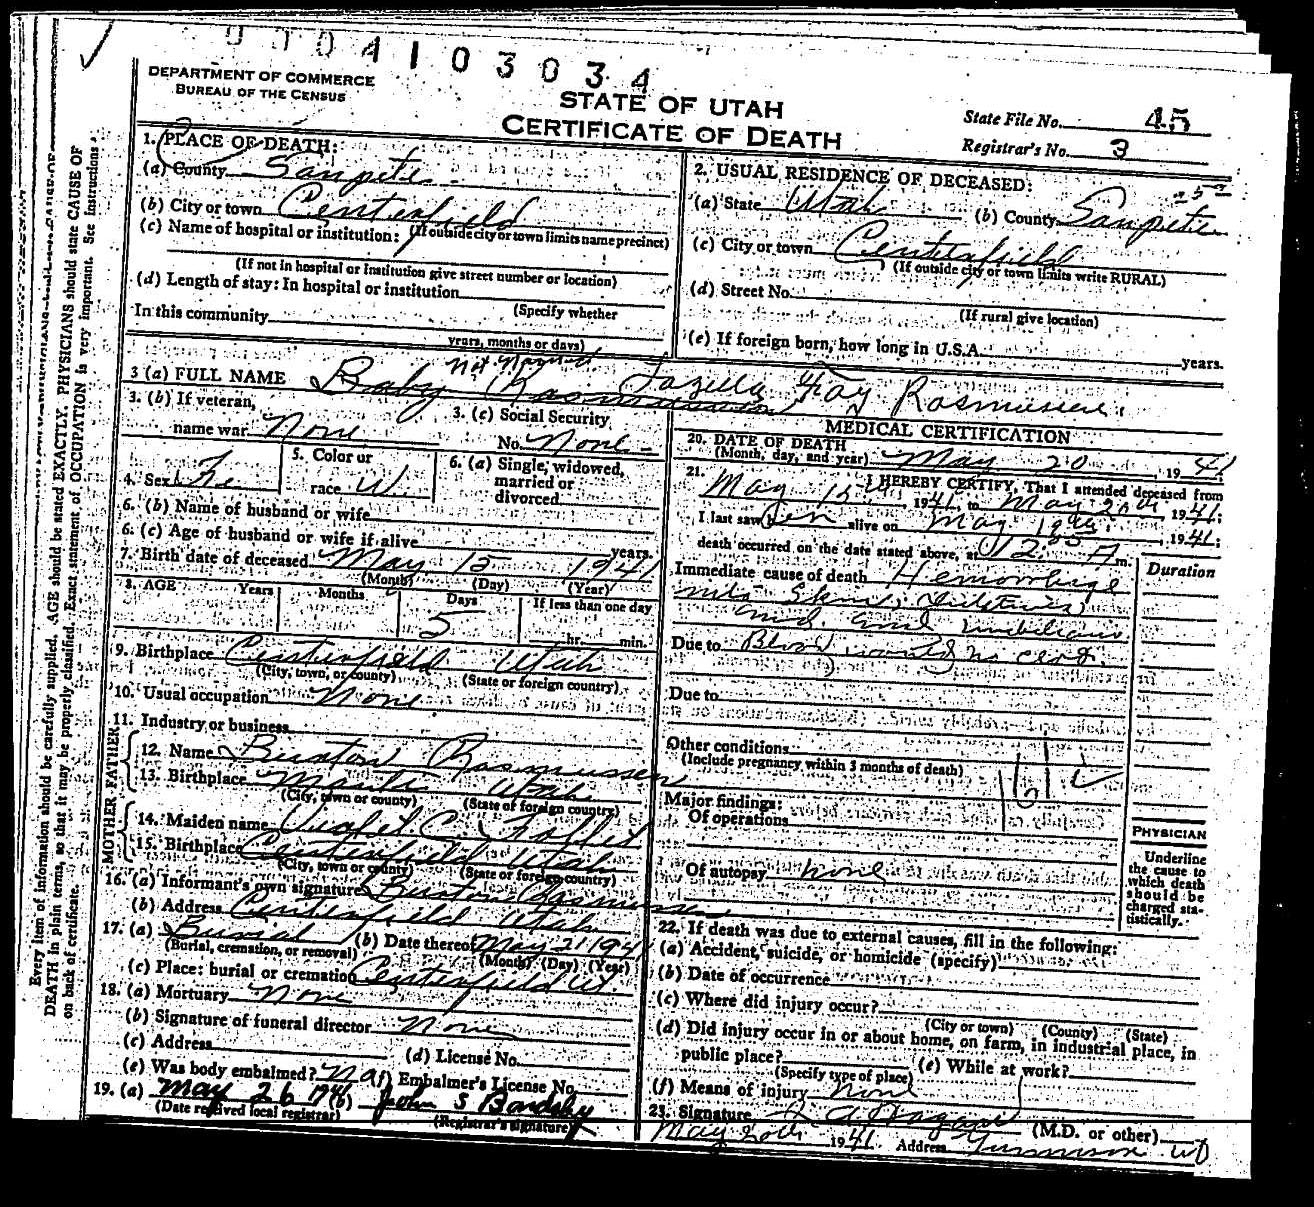 0 7 0 4 1 0 3 0 3 4
DEPARTMENT OF COMMERCE
BUREAU OF THE CENSUS
STATE OF UTAH
CERTIFICATE OF DEATH
State File No. 45
Registrar's No. 3
Every item of information should be carefully supplied. AGE should be stated EXACTLY. PHYSICIANS should state CAUSE OF
DEATH in plain terms, so that it may be properly classified. Exact statement of OCCUPATION is very important. See instructions
on back of certificate.
1. PLACE OF DEATH:
(a) County Sanpete
(b) City or town Centerfield
(If outside city or town limits name precinct)
(c) Name of hospital or institution:
(If not in hospital or institution give street number or location)
(d) Length of stay: In hospital or institution
(Specify whether
In this community
years, months or days)
2. USUAL RESIDENCE OF DECEASED:
(a) State Utah (b) County Sanpete
(c) City or town Centerfield
(If outside city or town limits write RURAL)
(d) Street No.
(If rural give location)
(e) If foreign born, how long in U.S.A. years.
not named
3 (a) FULL NAME Baby Rasmussen Fay Rasmussen
3. (b) If veteran,
name war None
3. (c) Social Security
No. None
4. Sex Fe
5. Color or
race W.
6. (a) Single, widowed,
married or
divorced
6. (b) Name of husband or wife
6. (c) Age of husband or wife if alive years.
7. Birth date of deceased May 15 1941
(Month) (Day) (Year)
8. AGE Years Months Days If less than one day
5 hr. min.
9. Birthplace Centerfield Utah
(City, town, or county) (State or foreign country)
10. Usual occupation None
11. Industry or business
FATHER
12. Name Burton Rasmussen
13. Birthplace Manti Utah
(City, town or county) (State of foreign country)
MOTHER
14. Maiden name C.
15. Birthplace Centerfield Utah
(City, town or county) (State or foreign country)
16. (a) Informant's own signature Burton Rasmussen
(b) Address Centerfield Utah
17. (a) Burial (b) Date thereof May 21 1941
(Burial, cremation, or removal) (Month) (Day) (Year)
(c) Place: burial or cremation Centerfield Ut
18. (a) Mortuary None
(b) Signature of funeral director None
(c) Address (d) License No.
(e) Was body embalmed? No (f) Embalmer's License No.
19. (a) May 26 1941 (b) John S Bardsley
(Date received local registrar) (Registrar's signature)
MEDICAL CERTIFICATION
20. DATE OF DEATH
(Month, day, and year) May 20, 1941
21. I HEREBY CERTIFY, That I attended deceased from
May 15th, 1941, to May 20th 1941;
I last saw her alive on May 19th 1941;
death occurred on the date stated above, at 12:05 A m.
Duration
Immediate cause of death Hemorrhage
into Skin, Intestines
and umbilicus
Due to Blood would no clot.
Due to
Other conditions
(Include pregnancy within 3 months of death)
Major findings:
Of operations
Of autopsy none
PHYSICIAN
Underline
the cause to
which death
should be
charged sta-
tistically.
22. If death was due to external causes, fill in the following:
(a) Accident, suicide, or homicide (specify)
(b) Date of occurrence
(c) Where did injury occur?
(City or town) (County) (State)
(d) Did injury occur in or about home, on farm, in industrial place, in
public place? (e) While at work?
(Specify type of place)
(f) Means of injury None
23. Signature (M.D. or other)
May 20th 1941 Address Gunnison